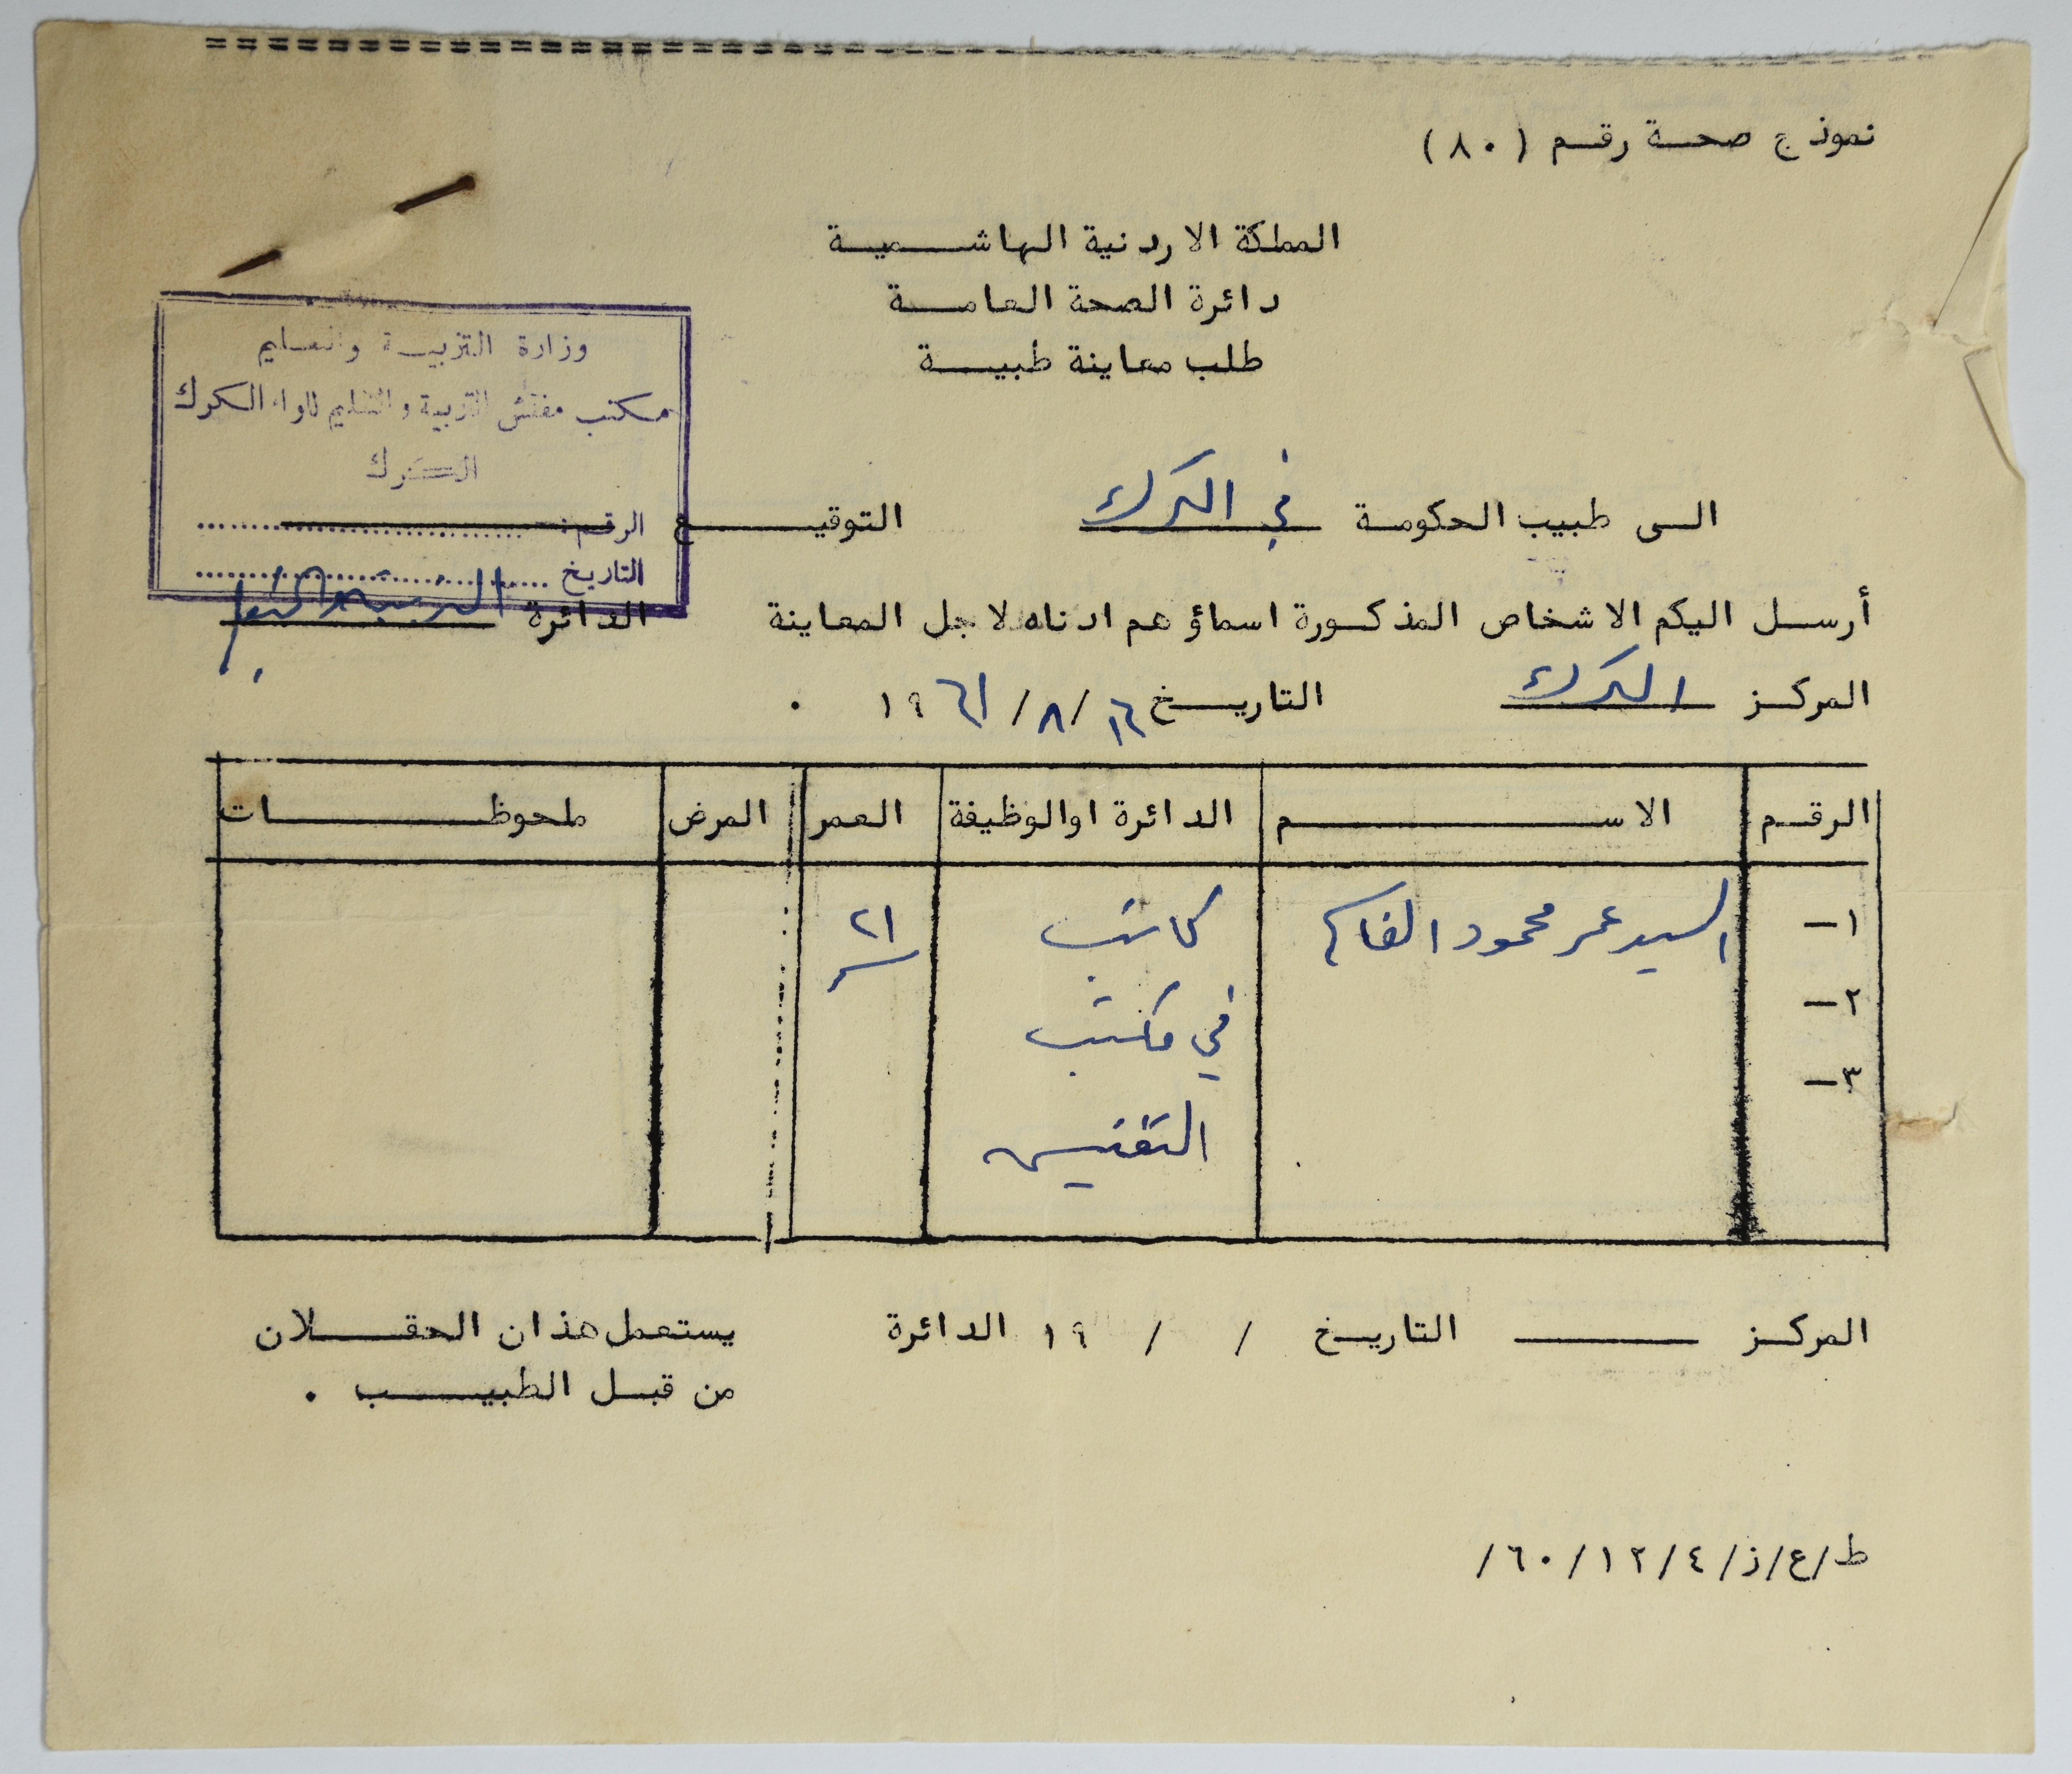 نموذج صحة رقم (٨٠)
المملكة الاردنية الهاشمية
دائرة الصحة العامة
طلب معاينة طبية
وزارة التربية والتعليم
مكتب مفتش التربية والتعليم للواء الكرك
الكرك
الرقم:
التاريخ
الى طبيب الحكومة في الكرك التوقيع
أرسل اليكم الاشخاص المذكورة اسماؤهم ادناه لاجل المعاينة الدائرة التربية والتعليم
المركز الكرك التاريخ ١٦/٨/١٩٦١ .
الرقم الاسم الدائرة اوالوظيفة العمر المرض ملحوظات
١— السيد عمر محمود كاتب ٢١
٢— في مكتب
٣— التفتيش
المركز التاريخ / / ١٩ الدائرة يستعمل هذان الحقلان
من قبل الطبيب .
ط/ع/ز/٤/١٢/٦٠/